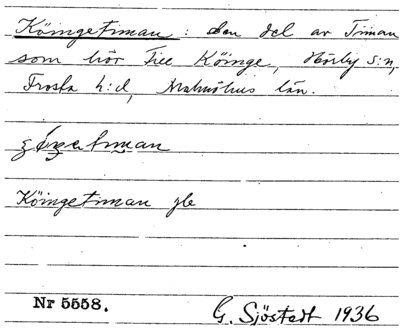 Köingetiman : den del av Timan
som hör till Köinge, Hörby s:n,
Frosta h:d, Malmöhus län.
Köingetiman
Nr 5558.
G. Sjöstedt 1936